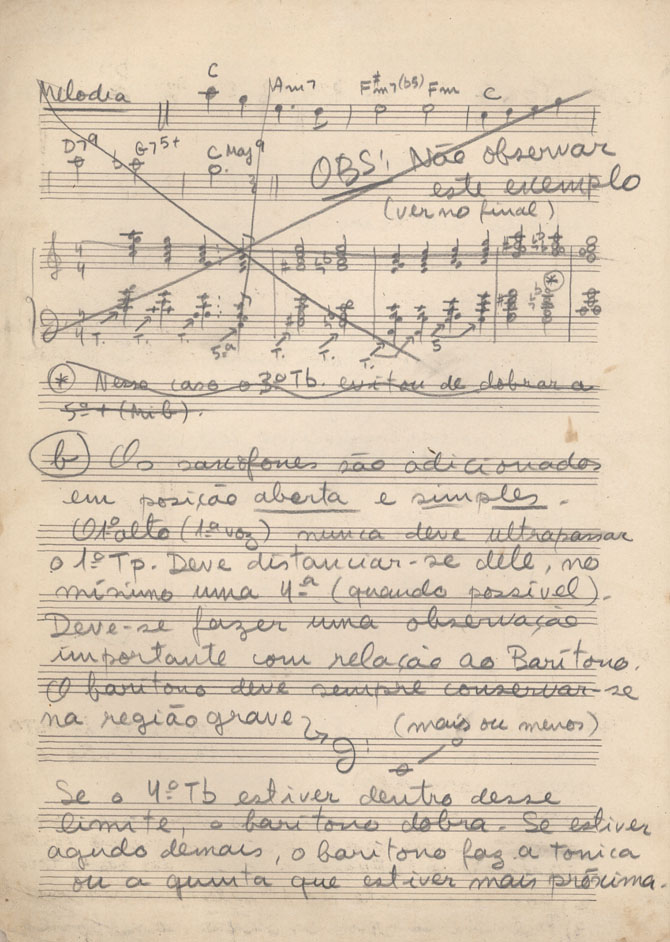 Melodia C Am7 F#m7(b5) Fm C
D7 9 G7 5+ C Maj 9
OBS: Não observar
este exemplo
(ver no final)
4 4
4 4
T. T. T. 5.ª T. T. T. 5
* Nesse caso o 3º Tb. evitou de dobrar a
5ª+ (Mi b).
b) Os saxofones são adicionados
em posição aberta e simples.
O 1º alto (1ª voz) nunca deve ultrapassar
o 1º Tp. Deve distanciar-se dele, no
mínimo uma 4ª (quando possível).
Deve-se fazer uma observação
importante com relação ao Barítono.
O barítono deve sempre conservar-se
na região grave (mais ou menos)
Se o 4º Tb estiver dentro desse
limite, o barítono dobra. Se estiver
agudo demais, o barítono faz a tonica
ou a quinta que estiver mais próxima.